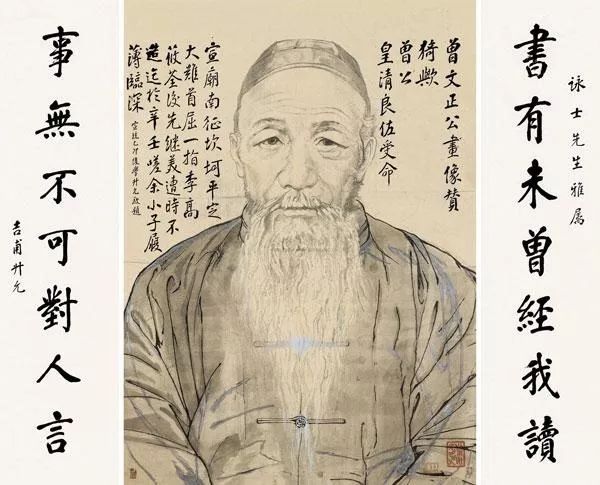 書有未曾經我讀
詠士先生雅属
曾文正公畫像贊
猗歟
曾公
皇清良佐受命
宣廟南征坎坷平定
大難首屈一指李高
筱荃後先繼美遭時不
造迄於辛壬嗟余小子履
薄臨深
宣統乙卯後學升允敬題
事無不可對人言
吉甫升允